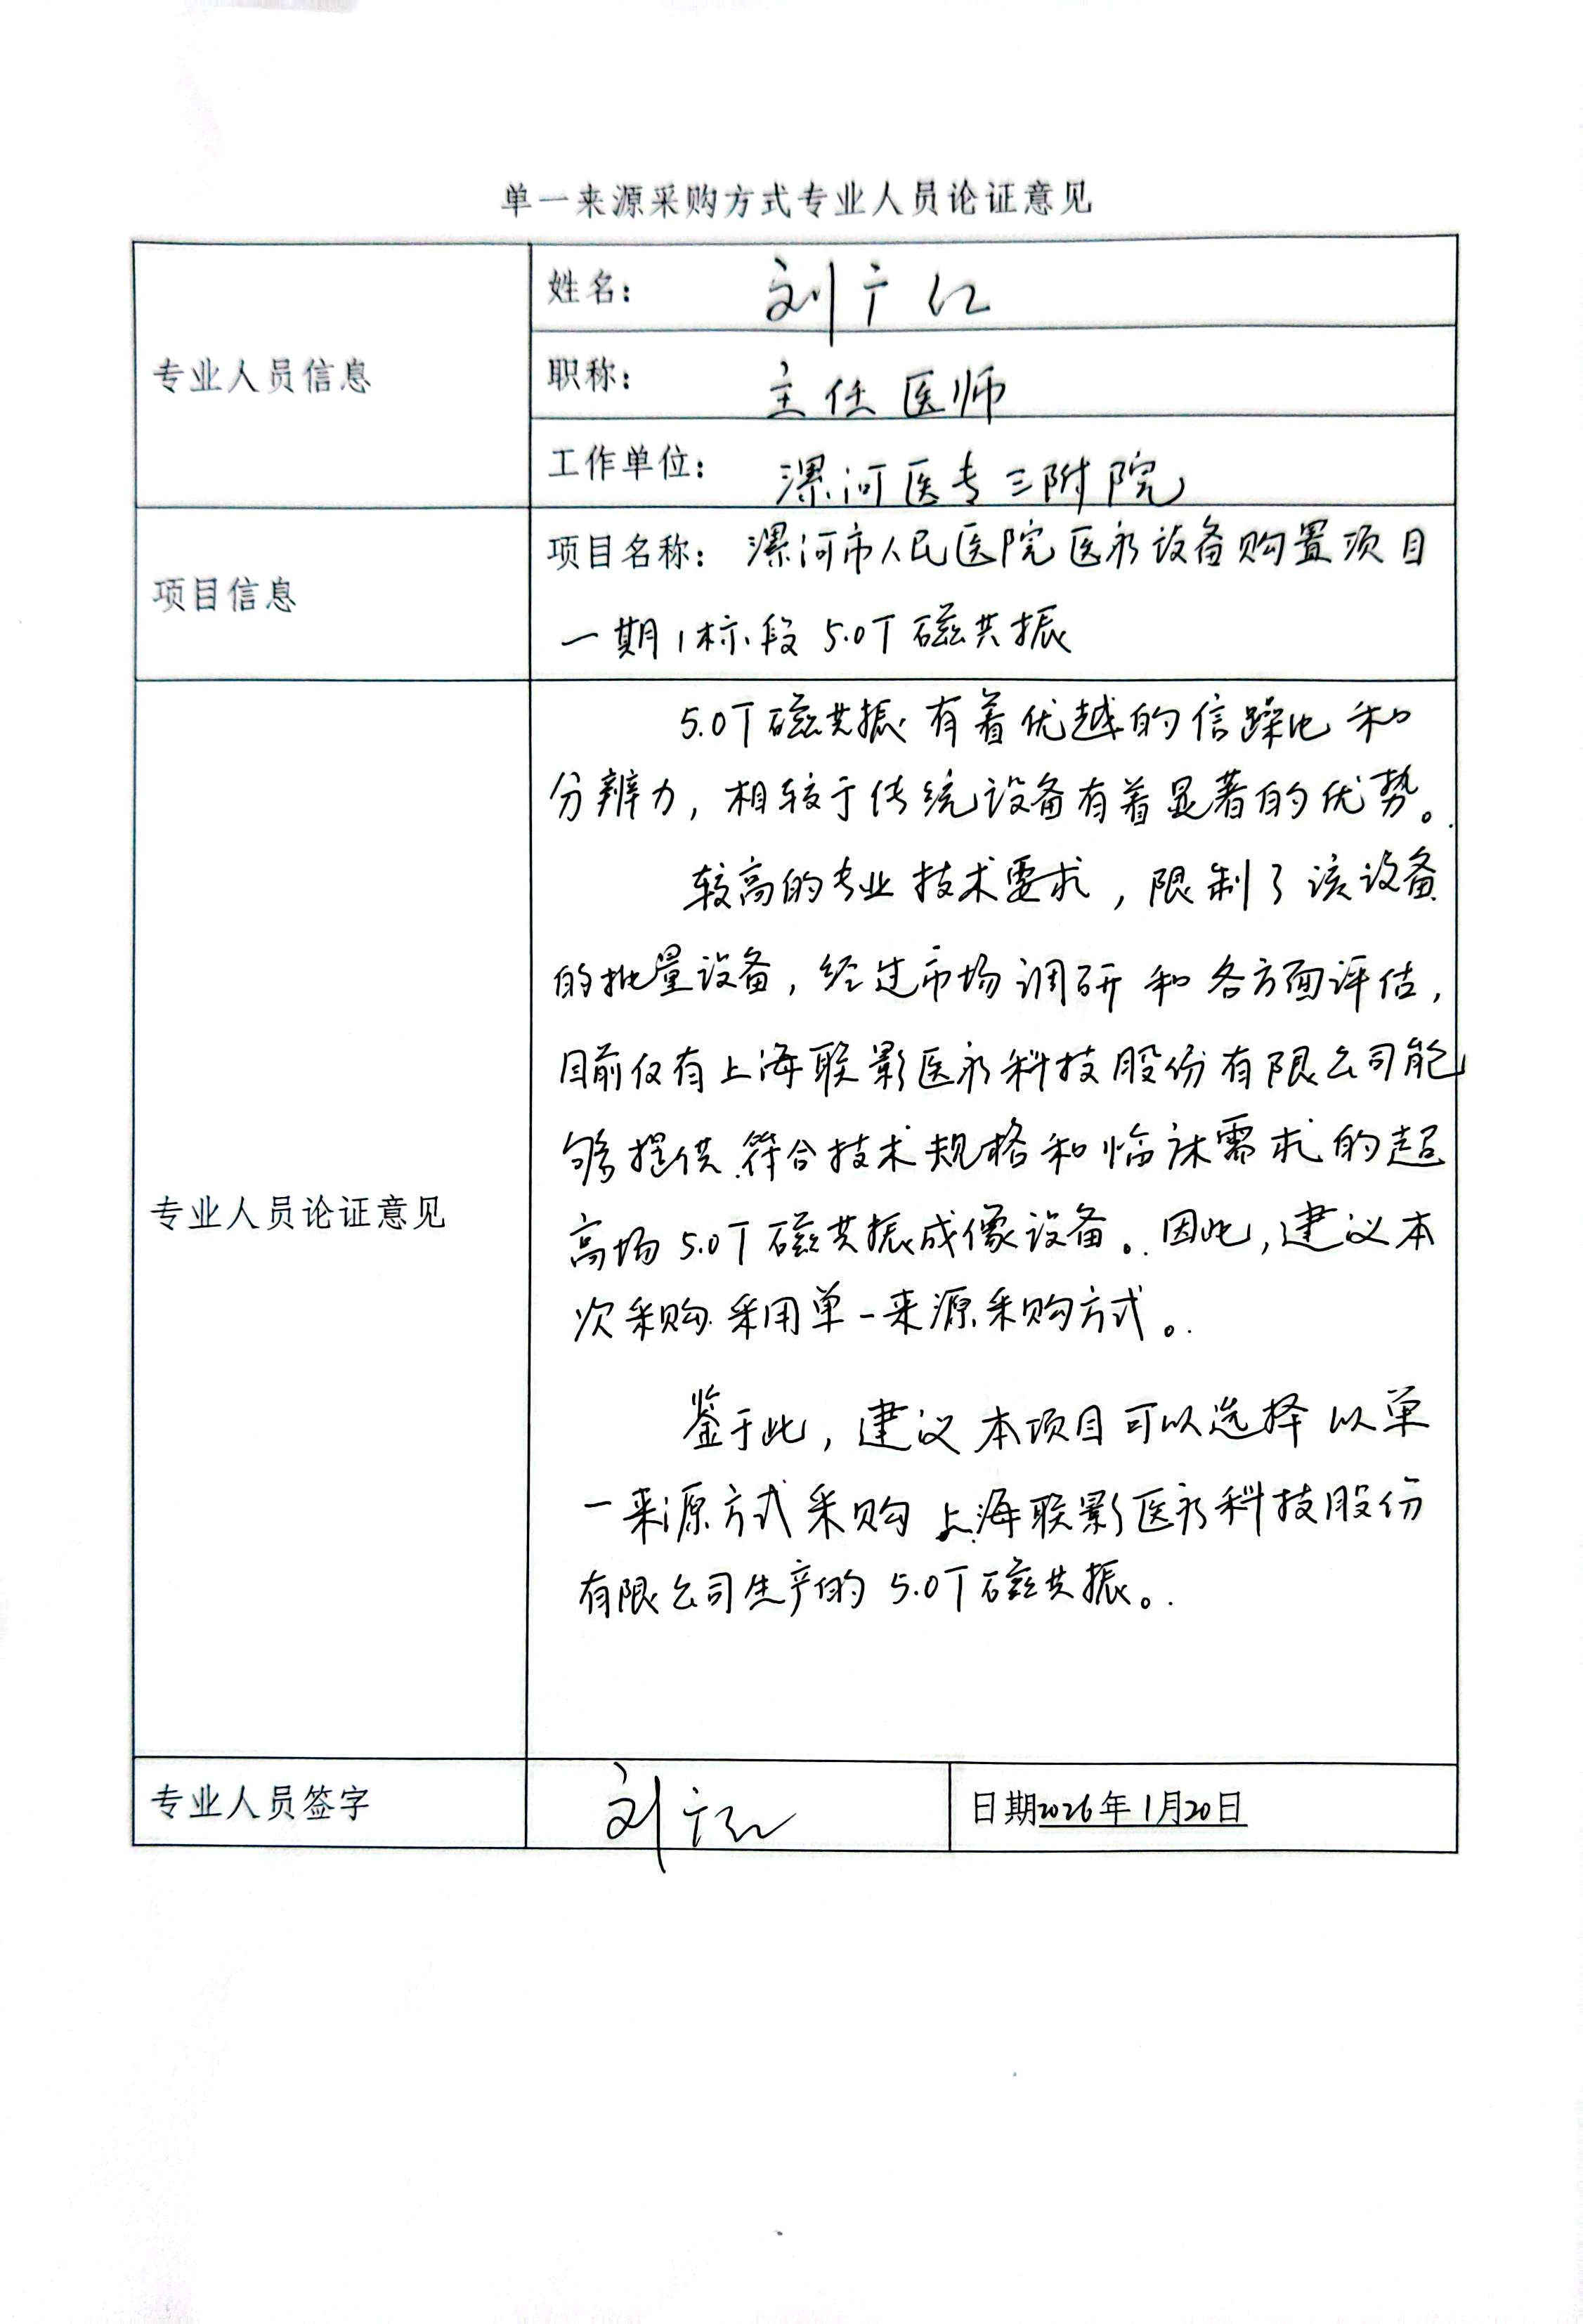 单一来源采购方式专业人员论证意见
专业人员信息
姓名： 刘广红
职称： 主任医师
工作单位： 漯河医专三附院
项目信息
项目名称：漯河市人民医院医疗设备购置项目
一期1标段5.0T磁共振
专业人员论证意见
5.0T磁共振有着优越的信躁比和
分辨力，相较于传统设备有着显著的优势。
较高的专业技术要求，限制了该设备
的批量设备，经过市场调研和各方面评估，
目前仅有上海联影医疗科技股份有限公司能
够提供符合技术规格和临床需求的超
高场5.0T磁共振成像设备。因此，建议本
次采购采用单一来源采购方式。
鉴于此，建议本项目可以选择以单
一来源方式采购上海联影医疗科技股份
有限公司生产的5.0T磁共振。
专业人员签字
刘广红
日期2026年1月20日